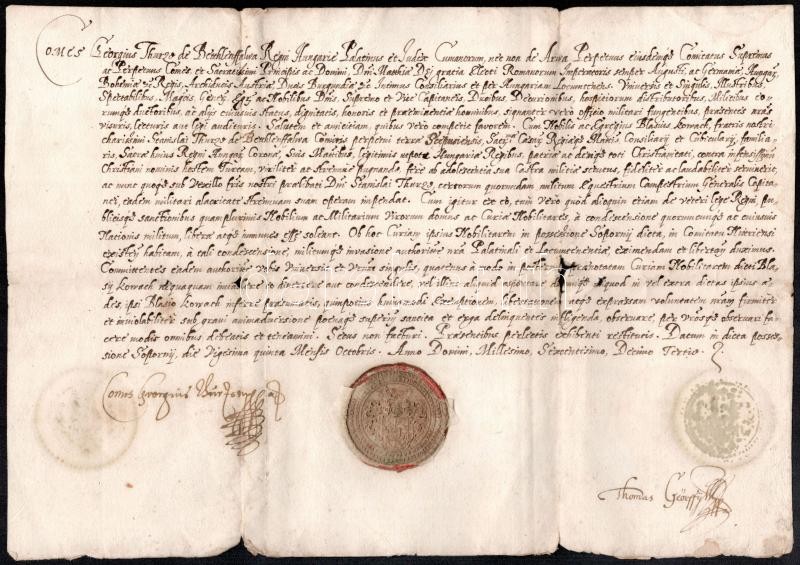 Comes Georgius Thurzo de Bethlenffalva Regni Hungariæ Palatinus et Iudex Cumanorum, nec non de Arwa Perpetuus Eiusdemq Comitatus Supremus
ac Perpetuus Comes, et Sacratissimi Principis ac Domini, Dni Matthiæ Dei gracia Electi Romanorum Imperatoris semper Augusti, ac Germaniæ, Hungariæ
Bohemiæ Regis, Archiducis Austriæ Ducis Burgundiæ Intimus Consiliarius et per Hungariam Locumtenens. Universis et Singulis, Illustribus,
Spectabilibus, Magcis, ac Nobilibus Dnis Supremo et Vice Capitaneis, Ductoribus, Decurionibus, hospitiorum distributoribus, Militibus eo-
rumq ductoribus, ac alijs cuiusvis status, dignitatis, honoris et præeminentiæ hominibus, signanter vero officio militari fungentibus, præsentes nras
visuris, lecturis aut legi audituris. Salutem et amicitiam, quibus vero competit favorem. Cum Nobilis ac Egregius Blasius Korvach, fratris nostri
charissimi Stanislai Thurzo de Bethlenffalva Comitis perpetui terræ Scepusiensis, Consiliarij et Cubicularij, familia-
ris, Sacræ huius Regni Hungar Coronæ, Suis Mattibus, legitimis Hungariæ Regibus, patriæ ac deniq toti Christianitati, contra infensissimum
Christiani nominis hostem Turcam, viriliter ac strenue pugnando, fere ab adolescentia sua Castra militiæ secutus, fideliter ac laudabiliter servierit,
ac nunc quoq sub Vexillo fris nostri prælibati Dni Stanislai Thurzo, certorum quorundam militum Equestrium Campestrium Generalis Capita-
nei, eadem militari alacritate strenuam suam operam impendat. Cum igitur ex eo, tum vero quod alioquin etiam de veteri lege Regni, pu-
blicisq sanctionibus quamplurimis Nobilium ac Militarium Virorum domus ac Curiæ Nobilitares, à condescensione quorumcunq ac cuiusvis
Nationis militum, liberæ atq immunes esse soleant. Ob hoc Curiam ipsius Nobilitarem in possessione Soporny dicta, in Comitatu Nitriensi
existen habitam, à tali condescensione, militumq invasione authoritate nra Palatinali et Locumtenentia, eximendam et libertan duximus.
Committentes eadem authoritate vobis Universis et Vestrum singulis, quatenus à modo in præ notatam Curiam Nobilitarem dicti Bla-
sij Korvach nequaquam divertere aut condescendere, vel illinc aliquid asportare quod in vel extra dictas ipsius æ-
des, ipsi Blasio Korvach inferre præsumatis, quinpotius huiusmodi Exemptionem, libertationem atq expressam voluntatem nram firmiter
et inviolabiliter sub gravi animadversione poenaq superin sancita et erga delinquentes infligenda, observare, per vrosq observari fa-
cere modis omnibus debeatis et teneamini. Secus non facturi. Præsentibus perlectis exhibenti restitutis. Datum in dicta posses-
sione Soporny, die Vigesima quinta Mensis Octobris. Anno Domini, Millesimo, Sexcentesimo, Decimo Tertio.
Comes Georgius Thurzo
Thomas Györffy